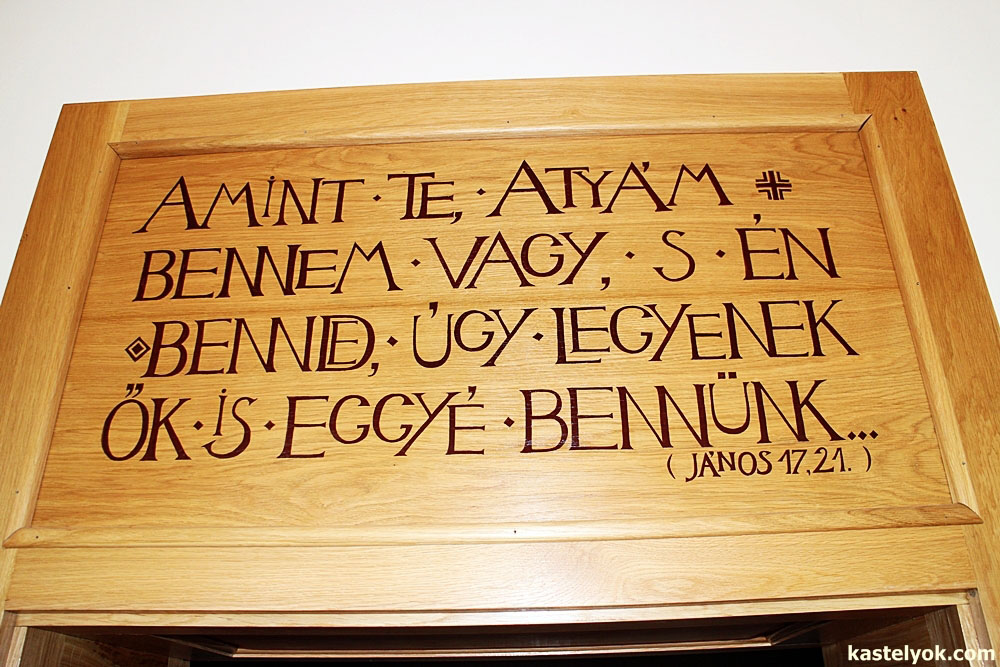 AMINT · TE, · ATYÁM
BENNEM · VAGY, · S · ÉN
BENNED, · ÚGY · LEGYENEK
ŐK · IS · EGGYÉ · BENNÜNK...
(JÁNOS 17,21.)
kastelyok.com